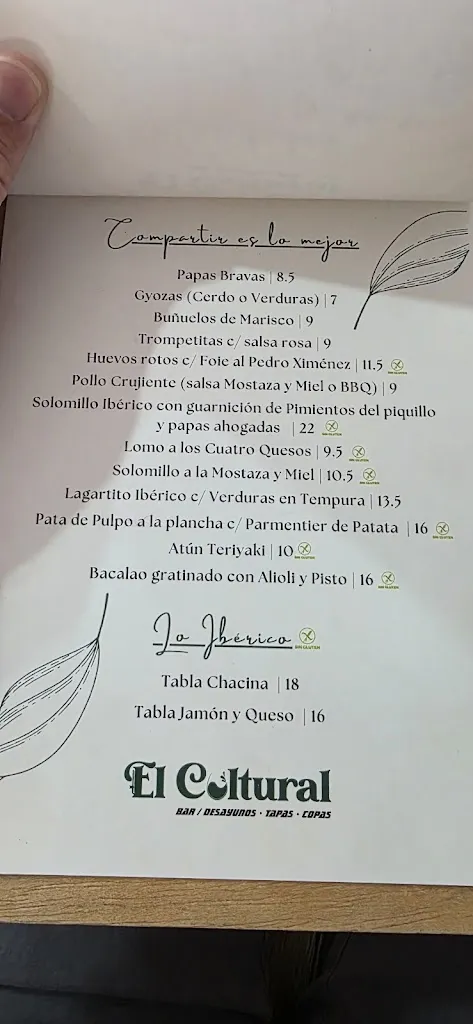 Compartir es lo mejor
Papas Bravas | 8.5
Gyozas (Cerdo o Verduras) | 7
Buñuelos de Marisco | 9
Trompetitas c/ salsa rosa | 9
Huevos rotos c/ Foie al Pedro Ximénez | 11.5 SIN GLUTEN
Pollo Crujiente (salsa Mostaza y Miel o BBQ) | 9
Solomillo Ibérico con guarnición de Pimientos del piquillo
y papas ahogadas | 22 SIN GLUTEN
Lomo a los Cuatro Quesos | 9.5 SIN GLUTEN
Solomillo a la Mostaza y Miel | 10.5 SIN GLUTEN
Lagartito Ibérico c/ Verduras en Tempura | 13.5
Pata de Pulpo a la plancha c/ Parmentier de Patata | 16 SIN GLUTEN
Atún Teriyaki | 10 SIN GLUTEN
Bacalao gratinado con Alioli y Pisto | 16 SIN GLUTEN
Lo Ibérico SIN GLUTEN
Tabla Chacina | 18
Tabla Jamón y Queso | 16
El Cultural
BAR / DESAYUNOS · TAPAS · COPAS